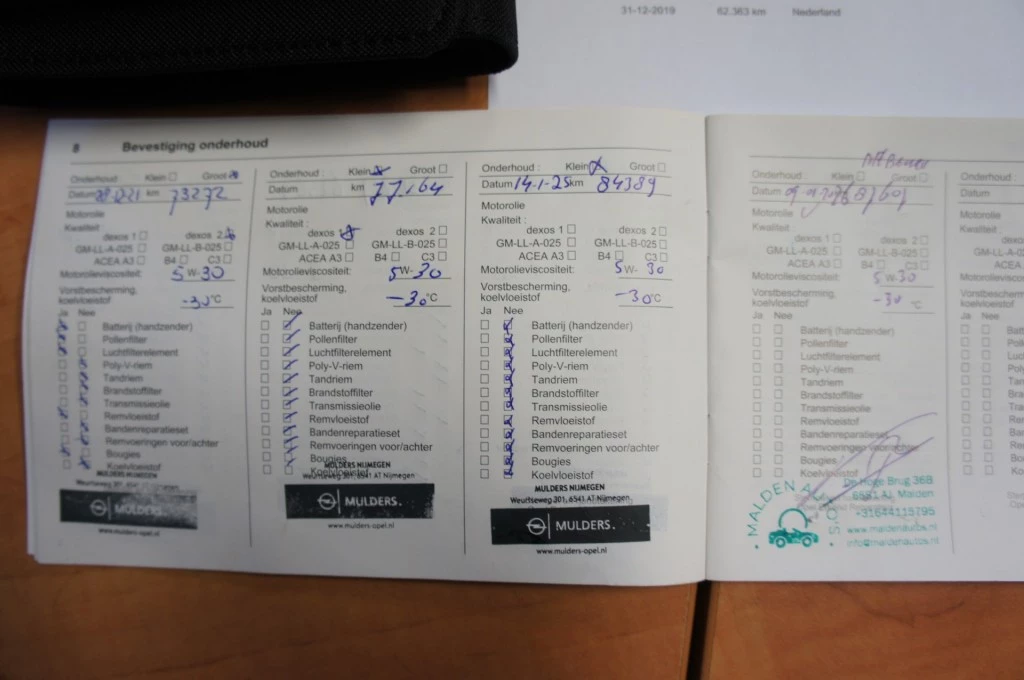 31-12-2019 62.363 km Nederland
8 Bevestiging onderhoud
Onderhoud : Klein Groot
Datum 28-12-21 km 73272
Motorolie
Kwaliteit :
dexos 1 dexos 2
GM-LL-A-025 GM-LL-B-025
ACEA A3 B4 C3
Motorolieviscositeit: 5W-30
Vorstbescherming,
koelvloeistof -30°C
Ja Nee
Batterij (handzender)
Pollenfilter
Luchtfilterelement
Poly-V-riem
Tandriem
Brandstoffilter
Transmissieolie
Remvloeistof
Bandenreparatieset
Remvoeringen voor/achter
Bougies
Koelvloeistof
MULDERS NIJMEGEN
Weurtseweg 301, 6541 AT Nijmegen
MULDERS.
Onderhoud : Klein Groot
Datum km 77164
Motorolie
Kwaliteit :
dexos 1 dexos 2
GM-LL-A-025 GM-LL-B-025
ACEA A3 B4 C3
Motorolieviscositeit: 5W-30
Vorstbescherming,
koelvloeistof -30°C
Ja Nee
Batterij (handzender)
Pollenfilter
Luchtfilterelement
Poly-V-riem
Tandriem
Brandstoffilter
Transmissieolie
Remvloeistof
Bandenreparatieset
Remvoeringen voor/achter
Bougies
Koelvloeistof
MULDERS NIJMEGEN
Weurtseweg 301, 6541 AT Nijmegen
MULDERS.
www.mulders-opel.nl
Onderhoud : Klein Groot
Datum 14-1-25 km 84389
Motorolie
Kwaliteit :
dexos 1 dexos 2
GM-LL-A-025 GM-LL-B-025
ACEA A3 B4 C3
Motorolieviscositeit: 5W-30
Vorstbescherming,
koelvloeistof -30°C
Ja Nee
Batterij (handzender)
Pollenfilter
Luchtfilterelement
Poly-V-riem
Tandriem
Brandstoffilter
Transmissieolie
Remvloeistof
Bandenreparatieset
Remvoeringen voor/achter
Bougies
Koelvloeistof
MULDERS NIJMEGEN
Weurtseweg 301, 6541 AT Nijmegen
MULDERS.
www.mulders-opel.nl
Onderhoud : Klein Groot
Datum
Motorolie
Kwaliteit :
dexos 1 dexos 2
GM-LL-A-025 GM-LL-B-025
ACEA A3 B4 C3
Motorolieviscositeit: 5W-30
Vorstbescherming,
koelvloeistof -30 °C
Ja Nee
Batterij (handzender)
Pollenfilter
Luchtfilterelement
Poly-V-riem
Tandriem
Brandstoffilter
Transmissieolie
Remvloeistof
Bandenreparatieset
Remvoeringen voor/achter
Bougies
Koelvloeistof
MALDEN AUTOS
De Hoge Brug 36B
6581 AJ, Malden
+31644115795
www.maldenautos.nl
info@maldenautos.nl
Onderhoud :
Datum
Motorolie
Kwaliteit :
Ja Nee